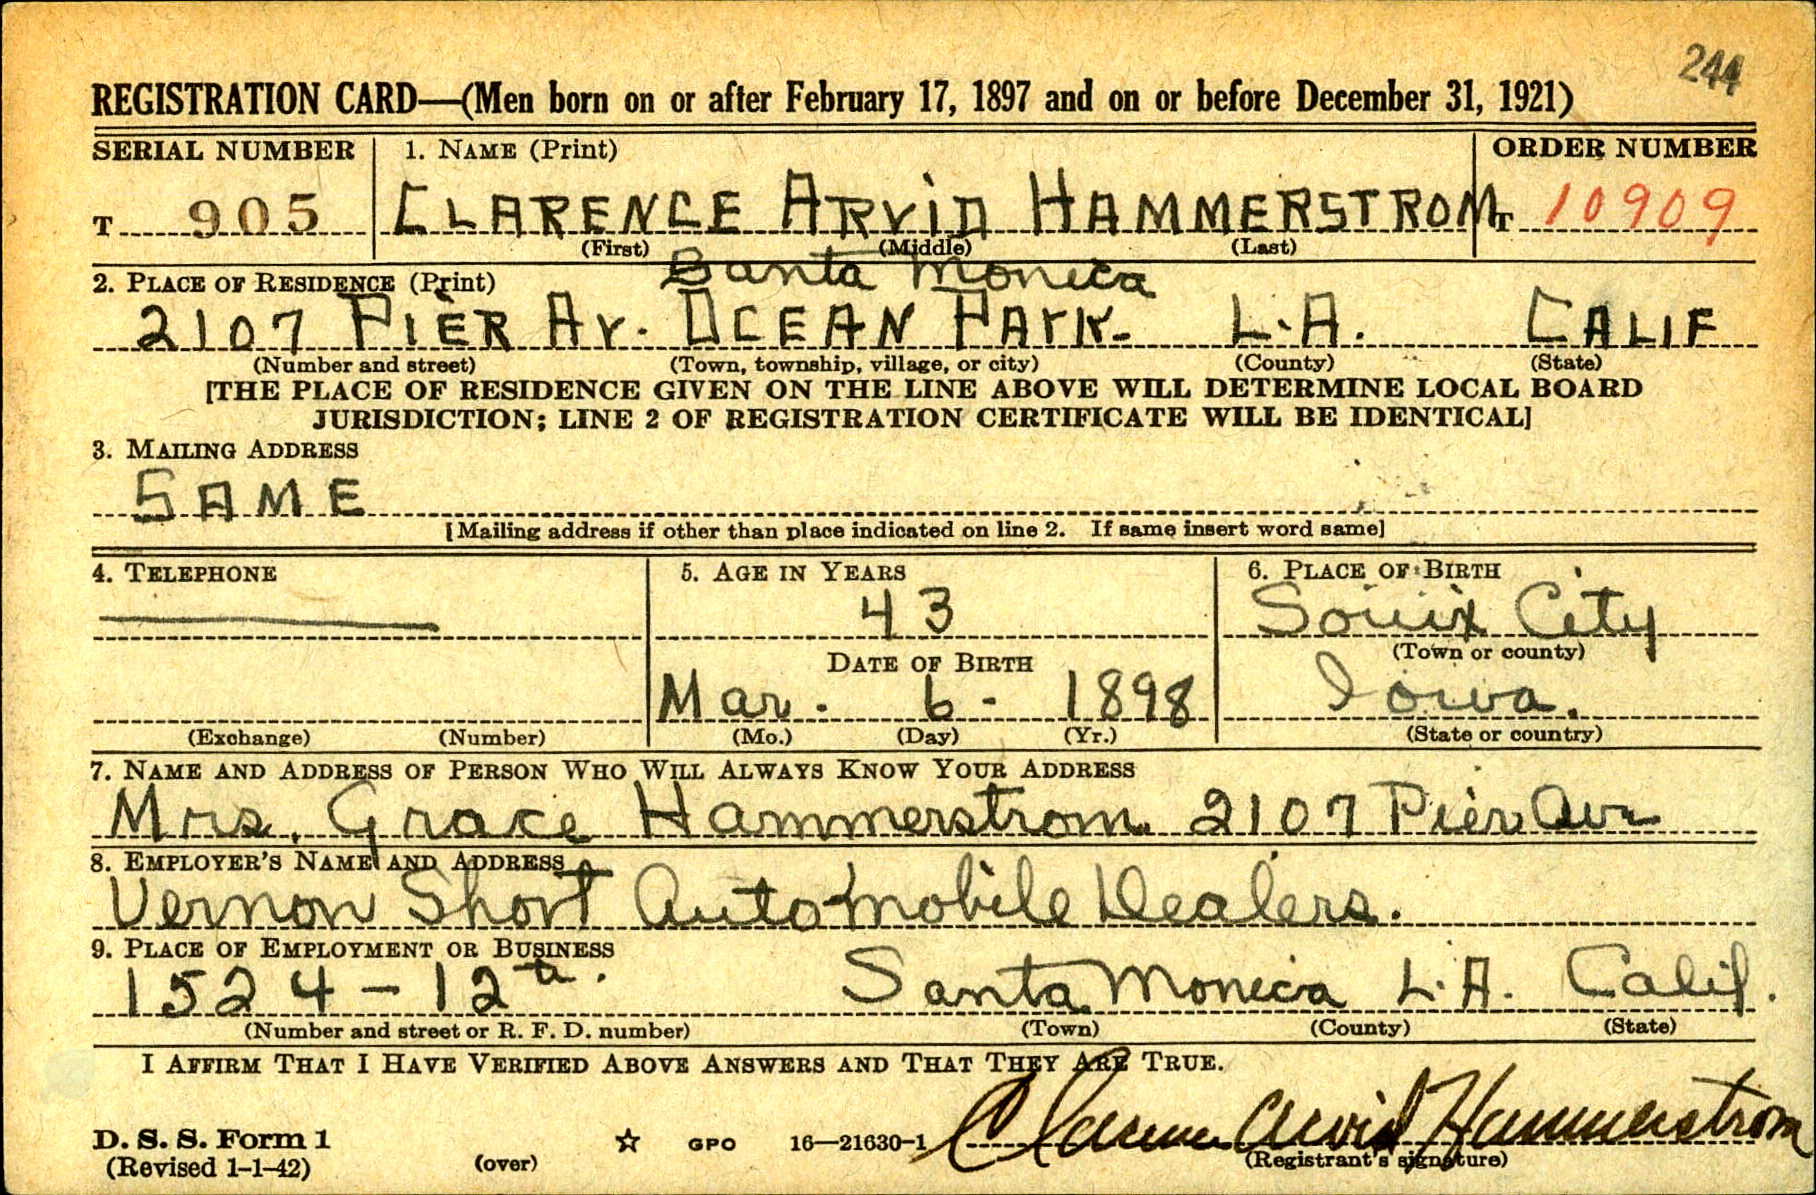 244
REGISTRATION CARD—(Men born on or after February 17, 1897 and on or before December 31, 1921)
SERIAL NUMBER 1. NAME (Print) ORDER NUMBER
T 905 CLARENCE ARVID HAMMERSTROM T 10909
(First) (Middle) (Last)
Santa Monica
2. PLACE OF RESIDENCE (Print)
2107 PIER AV. OCEAN PARK. L.A. CALIF
(Number and street) (Town, township, village, or city) (County) (State)
[THE PLACE OF RESIDENCE GIVEN ON THE LINE ABOVE WILL DETERMINE LOCAL BOARD
JURISDICTION; LINE 2 OF REGISTRATION CERTIFICATE WILL BE IDENTICAL]
3. MAILING ADDRESS
SAME
[Mailing address if other than place indicated on line 2. If same insert word same]
4. TELEPHONE 5. AGE IN YEARS 6. PLACE OF BIRTH
43 Souix City
(Town or county)
DATE OF BIRTH
Mar. 6 - 1898 Iowa.
(Exchange) (Number) (Mo.) (Day) (Yr.) (State or country)
7. NAME AND ADDRESS OF PERSON WHO WILL ALWAYS KNOW YOUR ADDRESS
Mrs. Grace Hammerstrom 2107 Pier Ave
8. EMPLOYER'S NAME AND ADDRESS
Vernon Short Automobile Dealers.
9. PLACE OF EMPLOYMENT OR BUSINESS
1524 - 12th. Santa Monica L.A. Calif.
(Number and street or R. F. D. number) (Town) (County) (State)
I AFFIRM THAT I HAVE VERIFIED ABOVE ANSWERS AND THAT THEY ARE TRUE.
Clarence Arvid Hammerstrom
D. S. S. Form 1 ☆ GPO 16—21630-1
(Revised 1-1-42) (over) (Registrant's signature)